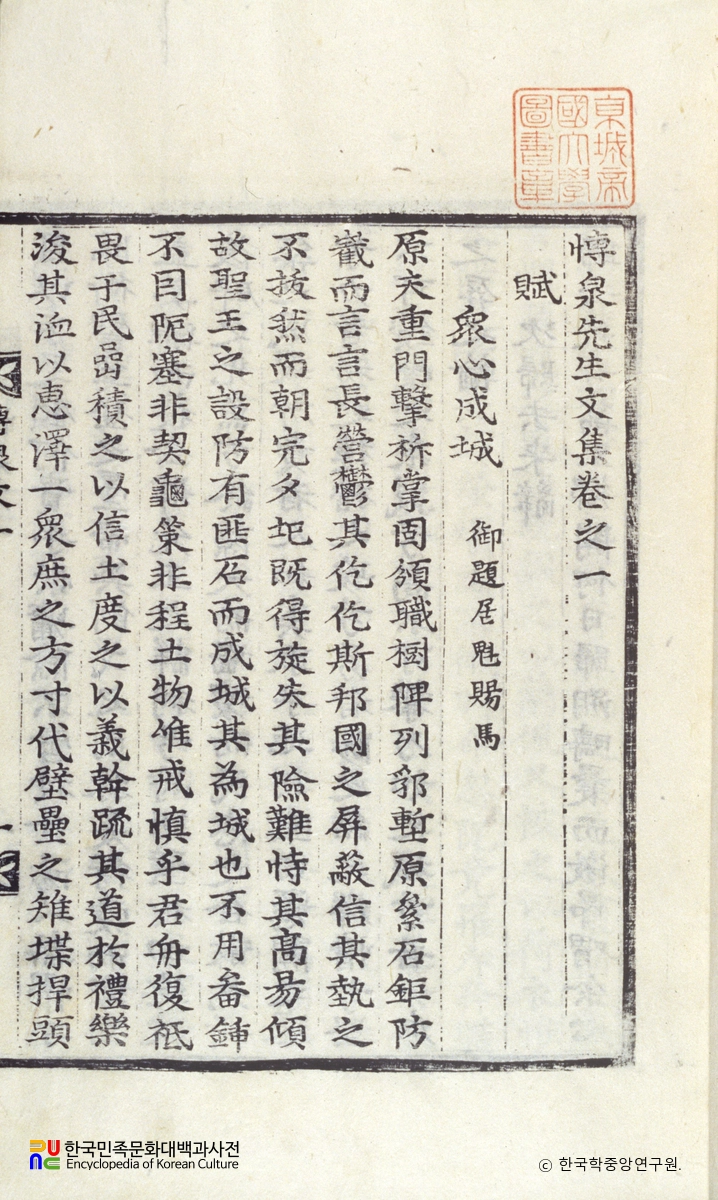 京城帝
國大學
圖書章
愽泉先生文集卷之一
賦
衆心成城 御題居魁賜馬
原夫重門擊柝掌固頒職樹陴列郛塹原絫石鉅防
嶻而言言長營鬱其仡仡斯邦國之屏蔽信其埶之
不拔然而朝完夕圮既得旋失其險難恃其高易傾
故聖王之設防有匪石而成城其為城也不用畚鍤
不因阨塞非契龜策非程土物惟戒慎乎君舟復祗
畏于民嵒積之以信土度之以義幹疏其道於禮樂
浚其洫以惠澤一衆庶之方寸代壁壘之雉堞捍頭
한국민족문화대백과사전
Encyclopedia of Korean Culture
© 한국학중앙연구원.